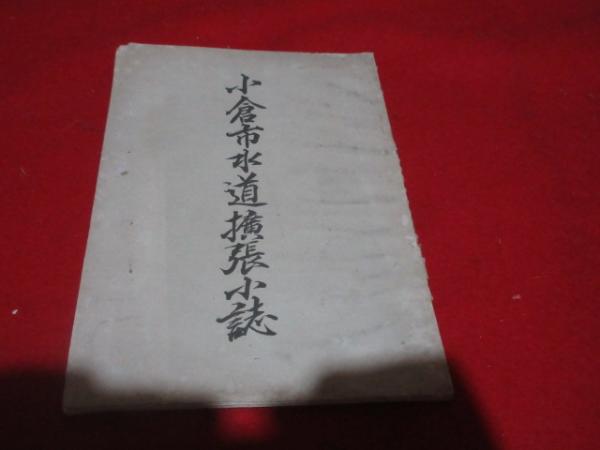 小倉市水道擴張小誌